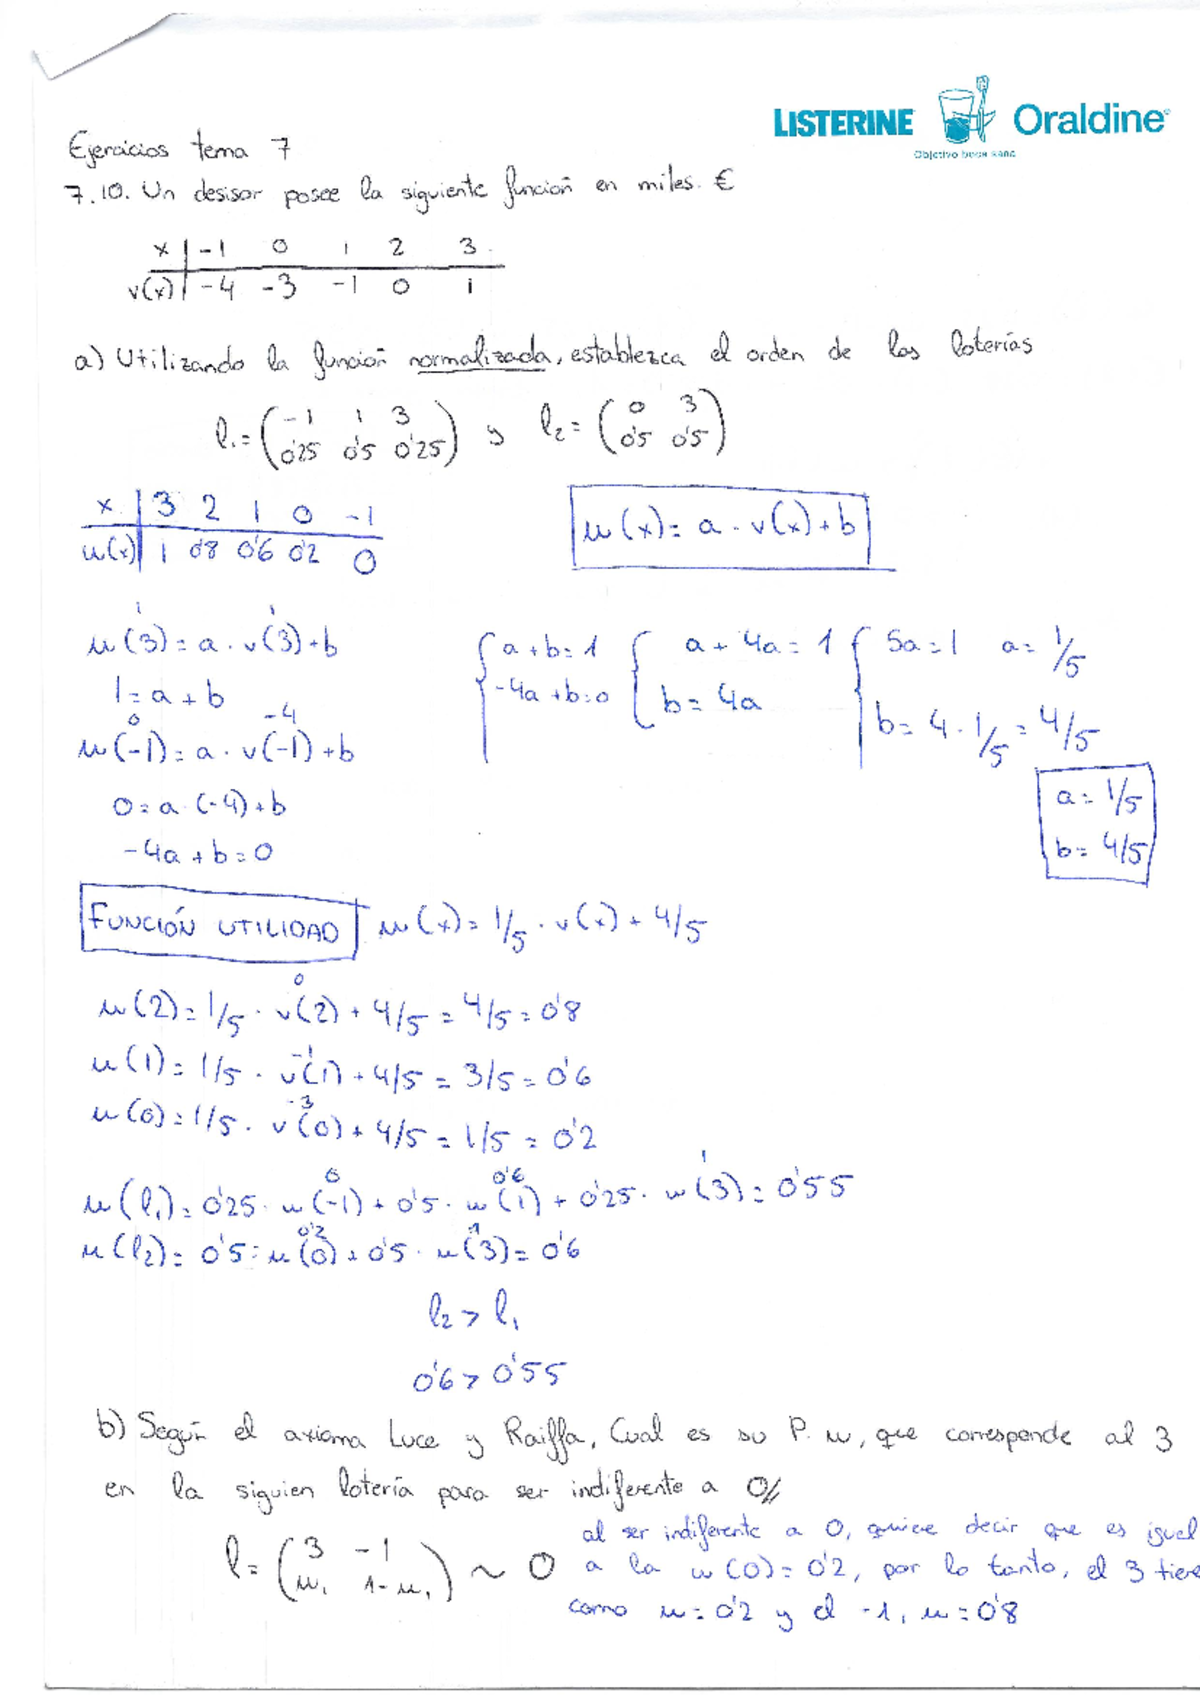 LISTERINE Oraldine
Objetivo boca sana
Ejercicios tema 7
7.10. Un desisor posee la siguiente función en miles. €
x | -1 0 1 2 3
v(x) | -4 -3 -1 0 1
a) Utilizando la función normalizada, establezca el orden de las loterías
l₁= ( -1 1 3 ) y l₂= ( 0 3 )
0'25 0'5 0'25 0'5 0'5
x | 3 2 1 0 -1
u(x) | 1 0'8 0'6 0'2 0
u(x)= a · v(x) + b
u(3)= a · v(3) + b
1 1
1 = a + b
u(-1)= a · v(-1) + b
0 -4
0 = a · (-4) + b
-4a + b = 0
{ a + b = 1 { a + 4a = 1 { 5a = 1 a = 1/5
-4a + b = 0 b = 4a b = 4 · 1/5 = 4/5
a = 1/5
b = 4/5
FUNCIÓN UTILIDAD u(x)= 1/5 · v(x) + 4/5
0
u(2)= 1/5 · v(2) + 4/5 = 4/5 = 0'8
-1
u(1)= 1/5 · v(1) + 4/5 = 3/5 = 0'6
-3
u(0)= 1/5 · v(0) + 4/5 = 1/5 = 0'2
0 0'6 1
u(l₁)= 0'25 · u(-1) + 0'5 · u(1) + 0'25 · u(3) = 0'55
0'2 1
u(l₂)= 0'5 · u(0) + 0'5 · u(3) = 0'6
l₂ > l₁
0'6 > 0'55
b) Según el axioma Luce y Raiffa, Cual es su P. u, que corresponde al 3
en la siguien lotería para ser indiferente a 0//
l= ( 3 -1 ) ~ 0
u₁ 1-u₁
al ser indiferente a 0, quiere decir que es igual
a la u(0)= 0'2, por lo tanto, el 3 tiene
como u = 0'2 y el -1, u = 0'8